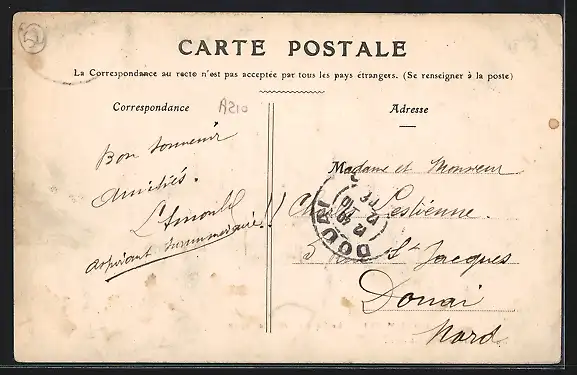 CARTE POSTALE
La Correspondance au recto n'est pas acceptée par tous les pays étrangers. (Se renseigner à la poste)
Correspondance
A210
Adresse
Bon souvenir
Amitiés.
L. Arnould
aspirant surnuméraire!!
Madame et Monsieur
Lestienne.
5 rue St Jacques
Douai
Nord
DOUAI